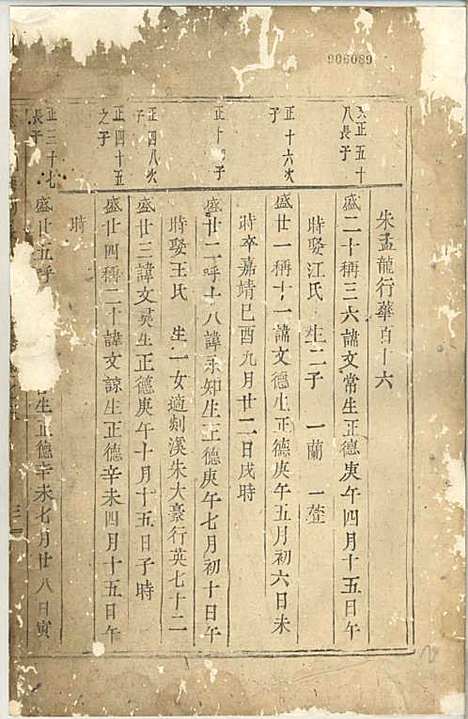 906089
朱孟龍行華百十六
正五十
八長子
盛二十稱三六諱文常生正德庚午四月十五日午
時娶江氏 生二子 一蘭 一
正十六次
子
盛廿一稱十一諱文德生正德庚午五月初六日未
時卒嘉靖己酉九月廿二日戌時
正十 子
盛廿二呼十八諱永知生正德庚午七月初十日午
時娶王氏 生一女適剡溪朱大豪行英七十二
正四八次
子
盛廿三諱文英生正德庚午十月十五日子時
正四十五
之子
盛廿四稱二十諱文諒生正德辛未四月十五日午
時
正三十七
長子
盛廿五呼 生正德辛未七月廿八日寅